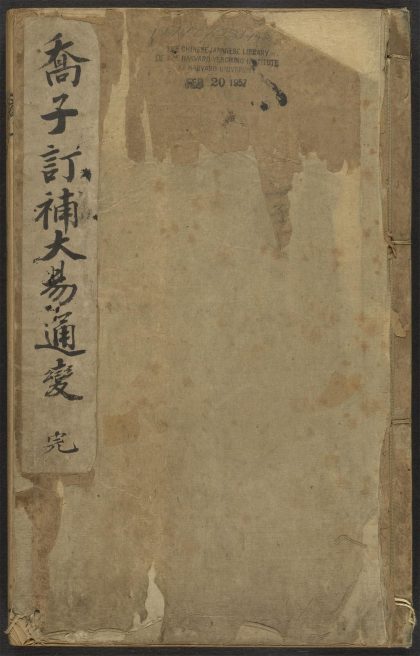 喬子訂補大易通變
完
THE CHINESE-JAPANESE LIBRARY
OF THE HARVARD-YENCHING INSTITUTE
AT HARVARD UNIVERSITY
FEB 20 1957